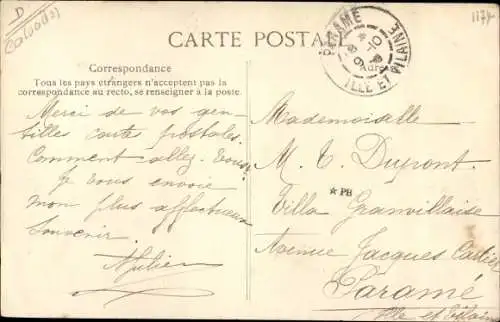 D
(Calvados)
1174
CARTE POSTALE
PARAMÉ
8
9-10
ILLE ET VILAINE
Correspondance
Tous les pays étrangers n'acceptent pas la
correspondance au recto, se renseigner à la poste.
Adre
Merci de vos gen-
tilles cartes postales.
Comment allez-vous?
Je vous envoie
mon plus affectueux
Souvenir.
Mademoiselle
M. T. Dupont
*PH
Villa Granvillaise
Avenue Jacques Cartier
Paramé
Ille et Vilaine